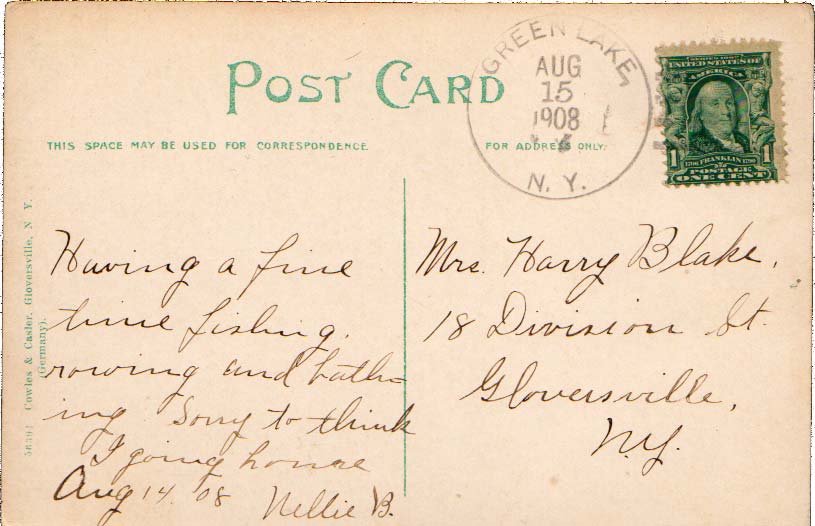 POST CARD
THIS SPACE MAY BE USED FOR CORRESPONDENCE.
FOR ADDRESS ONLY.
GREEN LAKE,
AUG
15
1908
N. Y.
SERIES 1902
UNITED STATES OF
AMERICA
1 1706 FRANKLIN 1790 1
POSTAGE
ONE CENT
56391 Cowles & Casler, Gloversville, N Y.
(Germany).
Having a fine
time fishing.
rowing and bath-
ing Sorry to think
I going home
Aug 14. 08 Nellie B.
Mrs. Harry Blake,
18 Division St.
Gloversville,
N.Y.